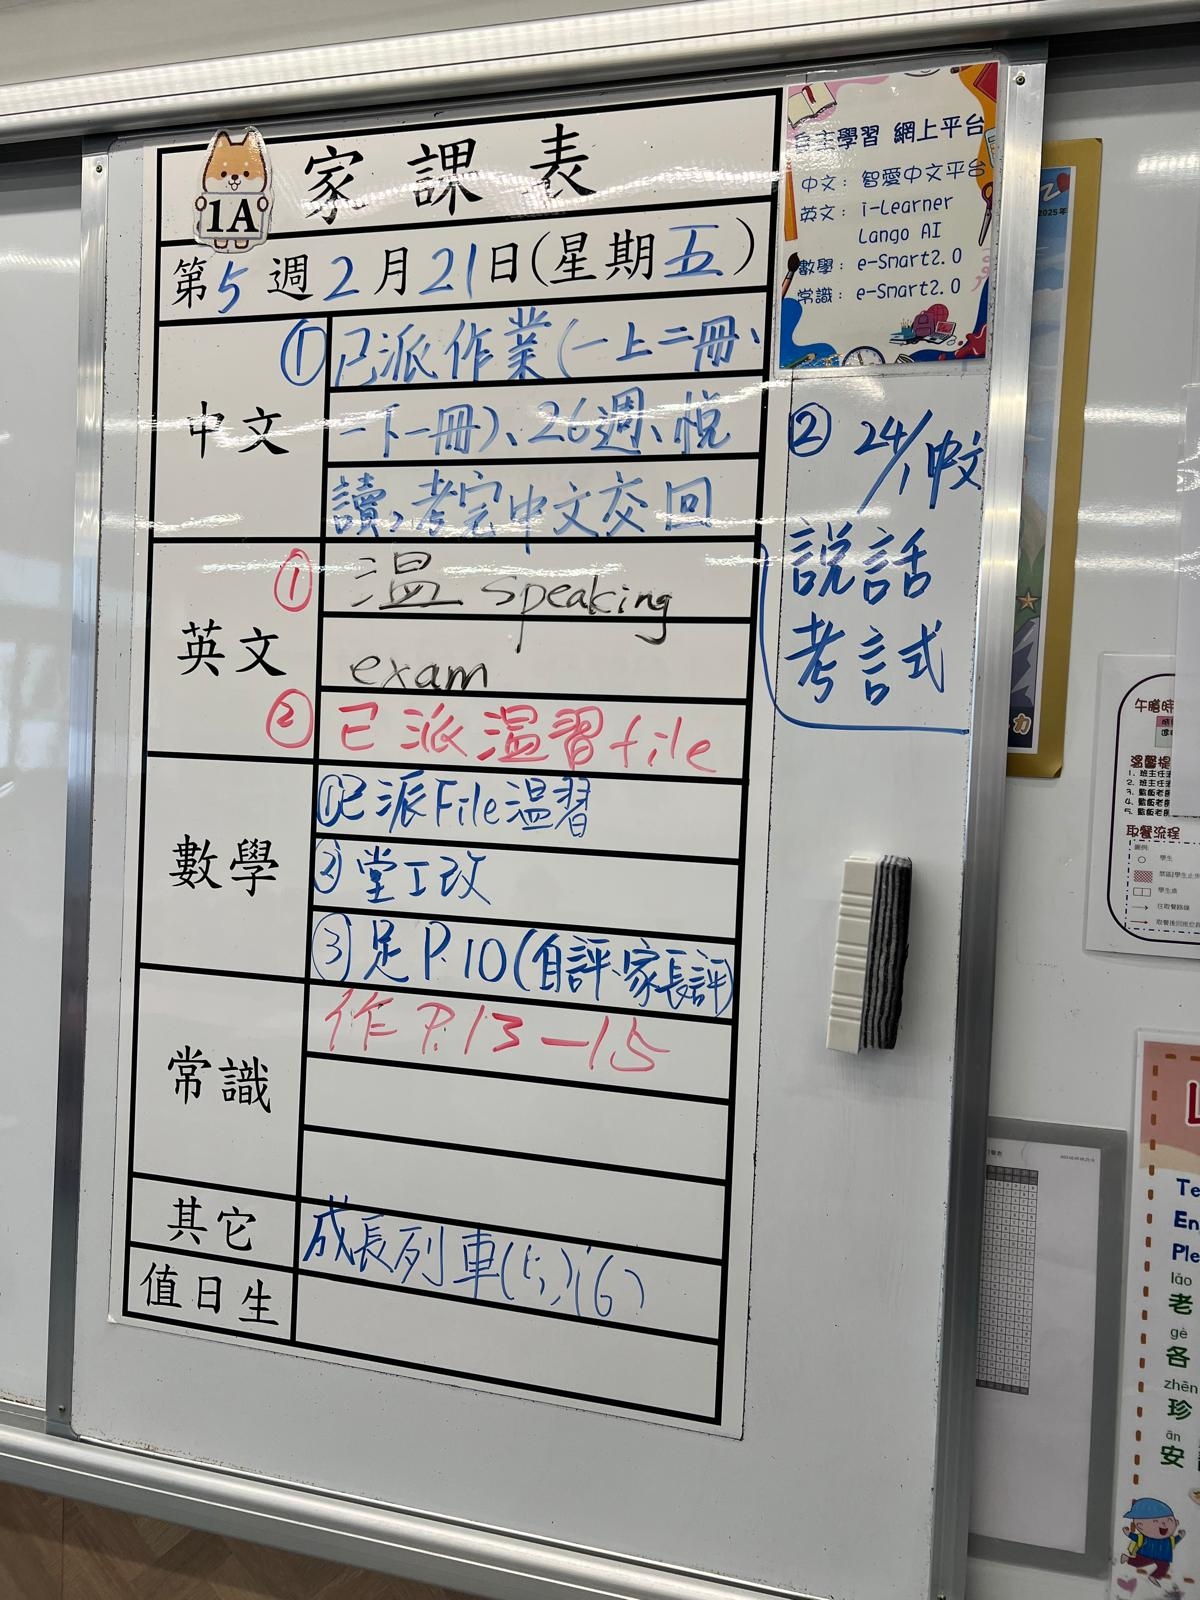 1A
家課表
第5週2月21日(星期五)
中文
①已派作業(一上二冊、
一下一冊)、26週、悅
讀,考完中文交回
②24/1中文
說話
考試
英文
①溫 speaking
exam
②已派溫習file
數學
①已派File溫習
②堂工改
③足P.10(自評.家長評)
常識
作P.13-15
其它
成長列車(5)(6)
值日生
自主學習 網上平台
中文: 智愛中文平台
英文: i-Learner
Lango AI
數學: e-Smart2.0
常識: e-Smart2.0
2025年
力
午膳時
溫馨提
1. 班主任
2. 班主任
3. 監飯老師
4. 監飯老師
5. 監飯老師
取餐流程
圖例:
學生
學生桌
往取餐路線
Te
En
Ple
lǎo
老
gè
各
zhēn
珍
ān
安